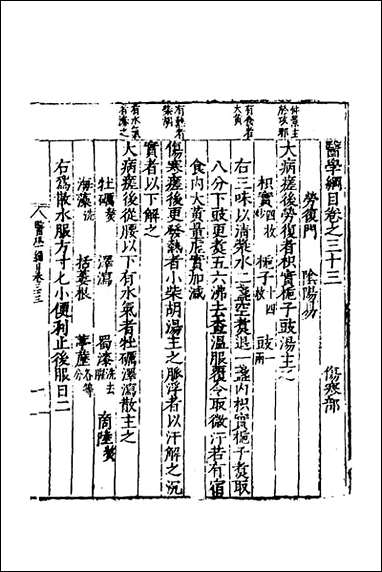 醫學綱目卷之三十三 傷寒部
勞復門 陰陽易
仲景主
大病瘥後勞復者枳實梔子豉湯主之
枳實四枚炒 梔子十四枚 豉一兩
有食者
大黄
右三味以清漿水二盞空煑退一盞内枳實梔子煑取
八分下豉更煑五六沸去査温服覆令取微汗若有宿
食内大黄量虚實加减
有熱者
柴胡
傷寒瘥後更發熱者小柴胡湯主之脉浮者以汗解之沉
實者以下解之
有水氣
大病瘥後從腰以下有水氣者牡礪澤瀉散主之
牡礪煑 澤瀉 蜀漆洗去腥 商陸煑
海藻洗 括蔞根 葶藶各等
右爲散水服方寸七小便利止後服日二
醫學綱目卷三三
一